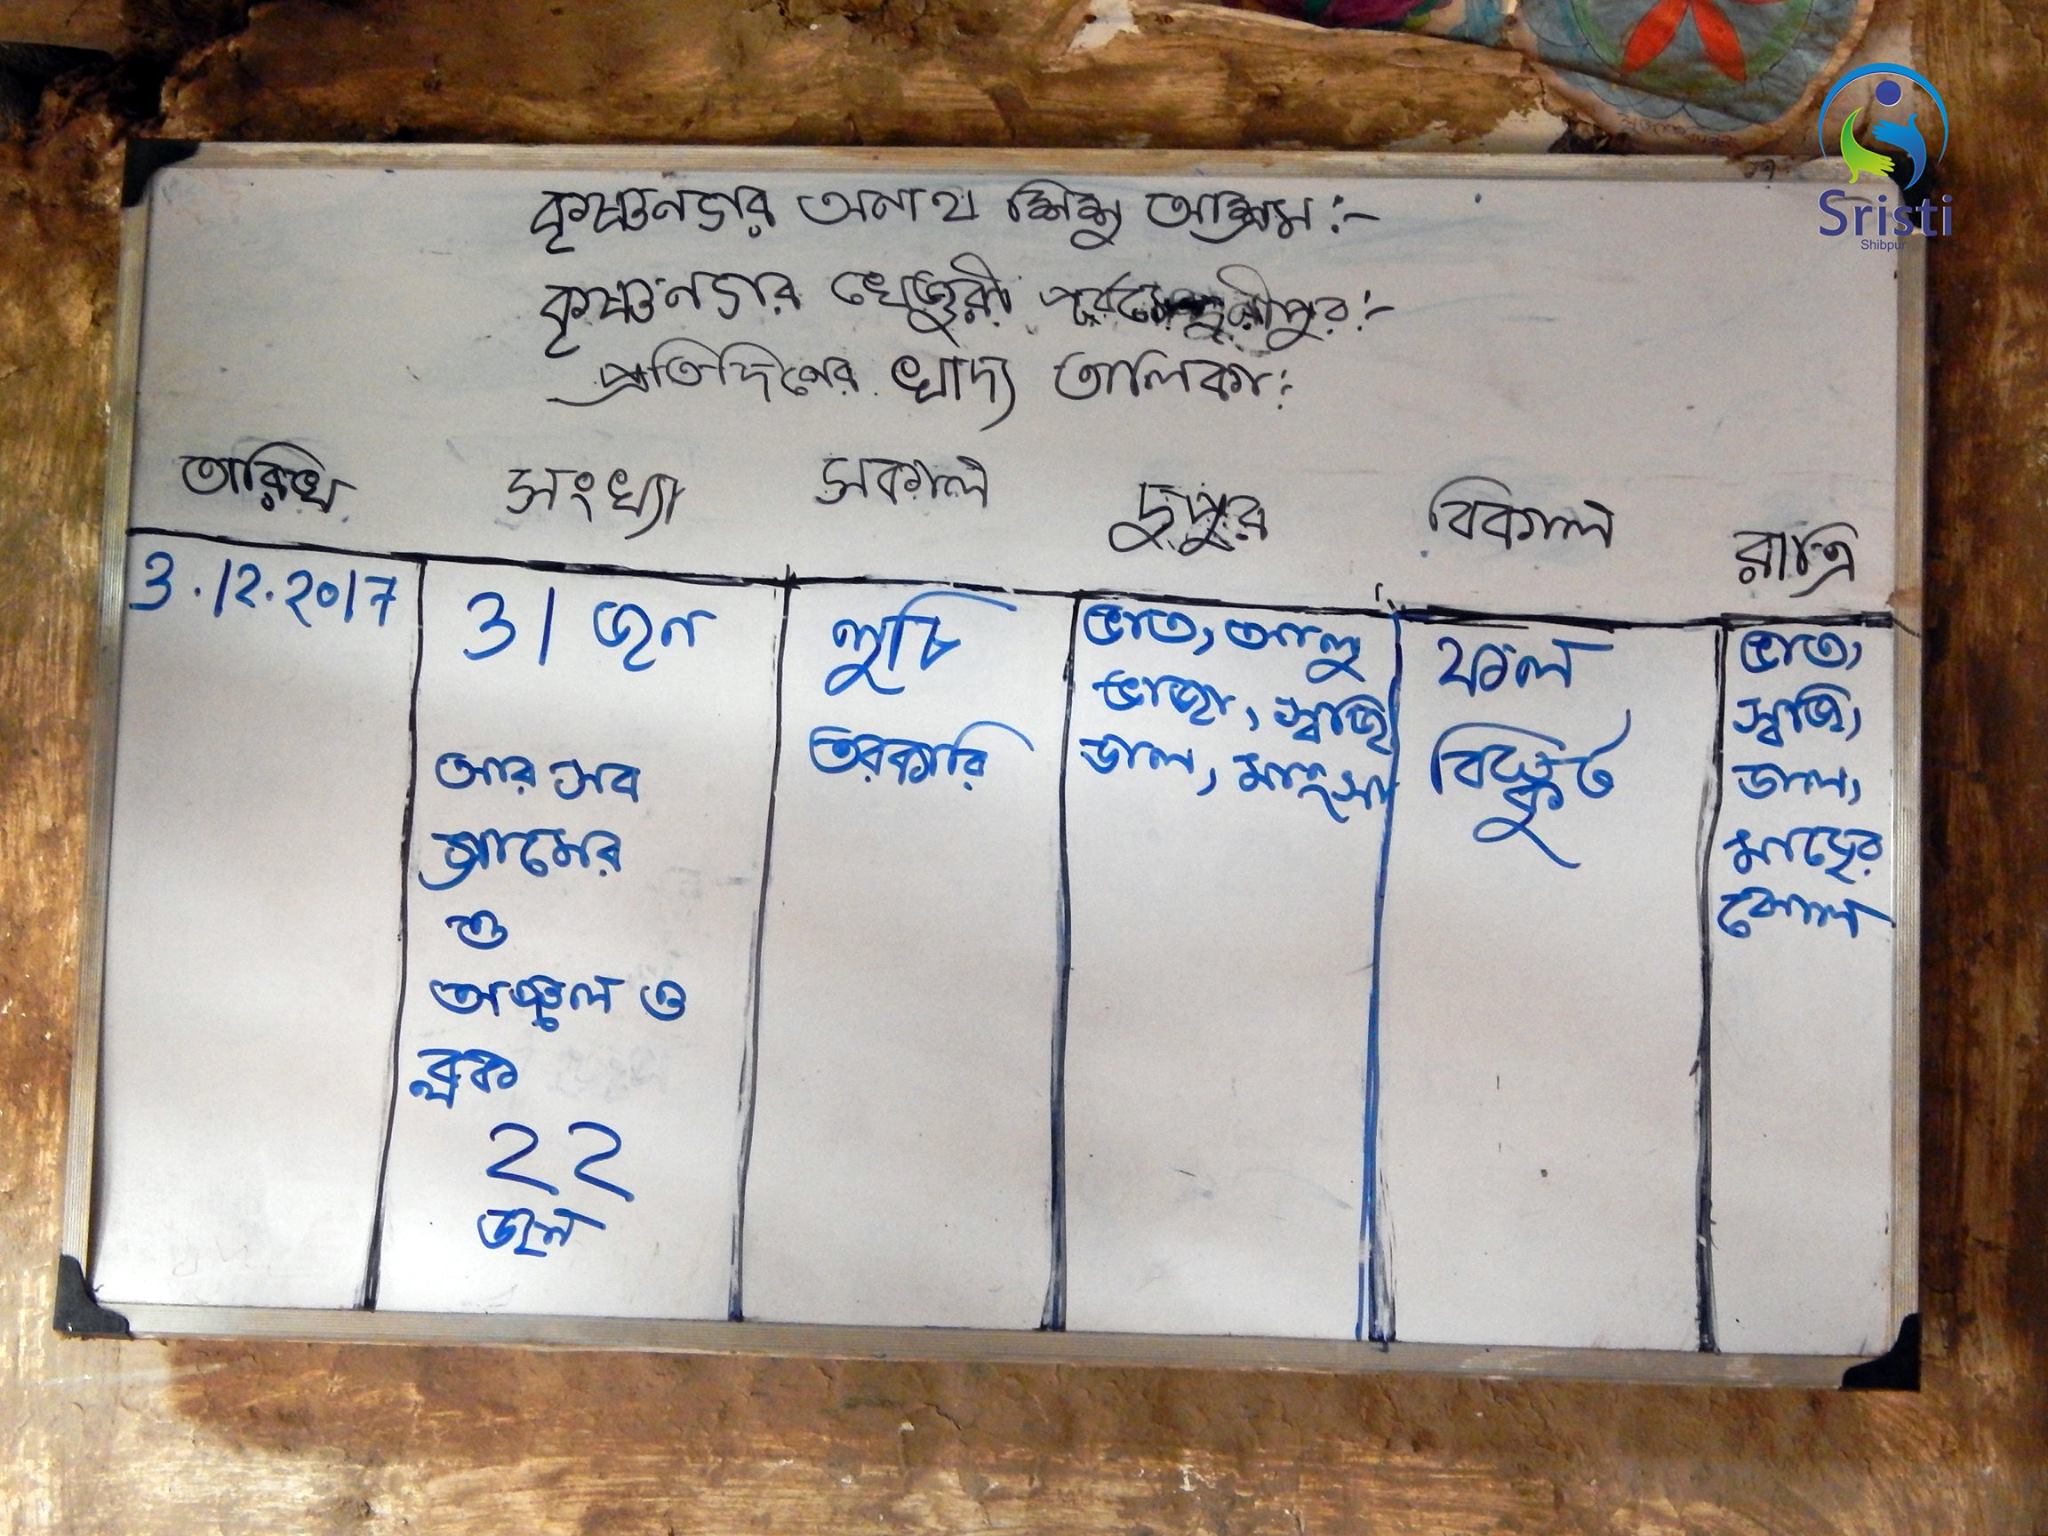 Sristi
Shibpur
কৃষ্ণনগর অনাথ শিশু আশ্রম:-
কৃষ্ণনগর খেজুরী পূর্বমেদুনীপুর:-
প্রতিদিনের খাদ্য তালিকা:
তারিখ সংখ্যা সকাল দুপুর বিকাল রাত্রি
3.12.2017
31 জন
আর সব
গ্রামের
ও
অঞ্চল ও
ব্লক
22
জন
লুচি
তরকারি
ভাত, আলু
ভাজা, স্বজি
ডাল, মাংস
ফল
বিস্কুট
ভাত,
স্বজি,
ডাল,
মাছের
ঝোল